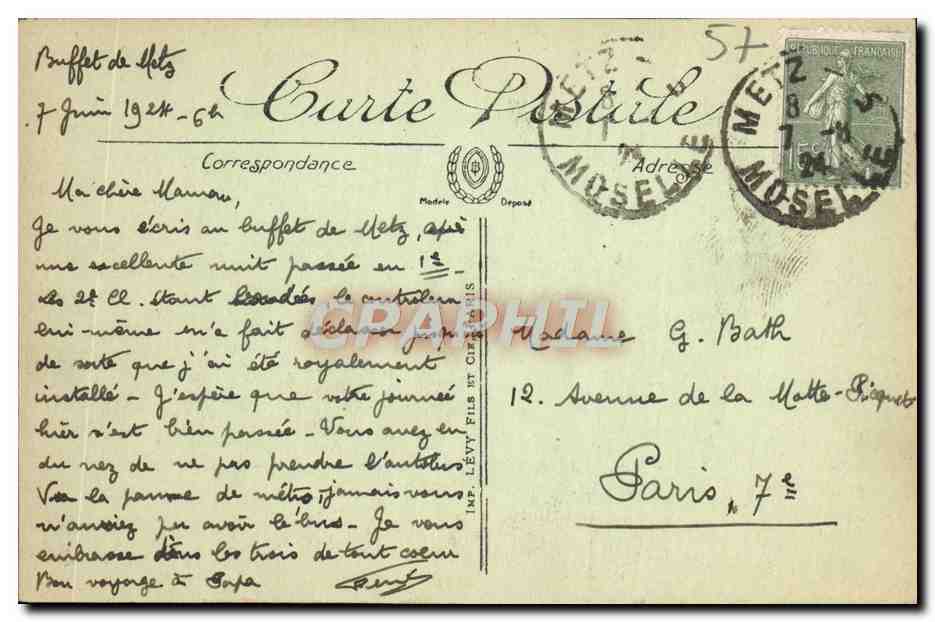 Buffet de Metz
7 Juin 1924 - 6h
57
Carte Postale
Correspondance
Adresse
Modèle Déposé
RÉPUBLIQUE FRANÇAISE
15c
METZ
8
MOSELLE
METZ 2
8
7 -6
24
MOSELLE
Ma chère Maman,
Je vous écris au buffet de Metz, après
une excellente nuit passée en 1e -
Les 2e Cl. étant bondées le contrôleur
lui-même m'a fait déclasser
de sorte que j'ai été royalement
installé - J'espère que votre journée
hier s'est bien passée - Vous avez eu
du nez de ne pas prendre l'autobus
Vu la panne de métro, jamais vous
n'auriez pu avoir le bus - Je vous
embrasse tous les trois de tout cœur
Bon voyage à Papa
IMP. LÉVY FILS ET CIE PARIS
Madame G. Bath
12. Avenue de la Motte-Picquet
Paris, 7e
CPAPHIL